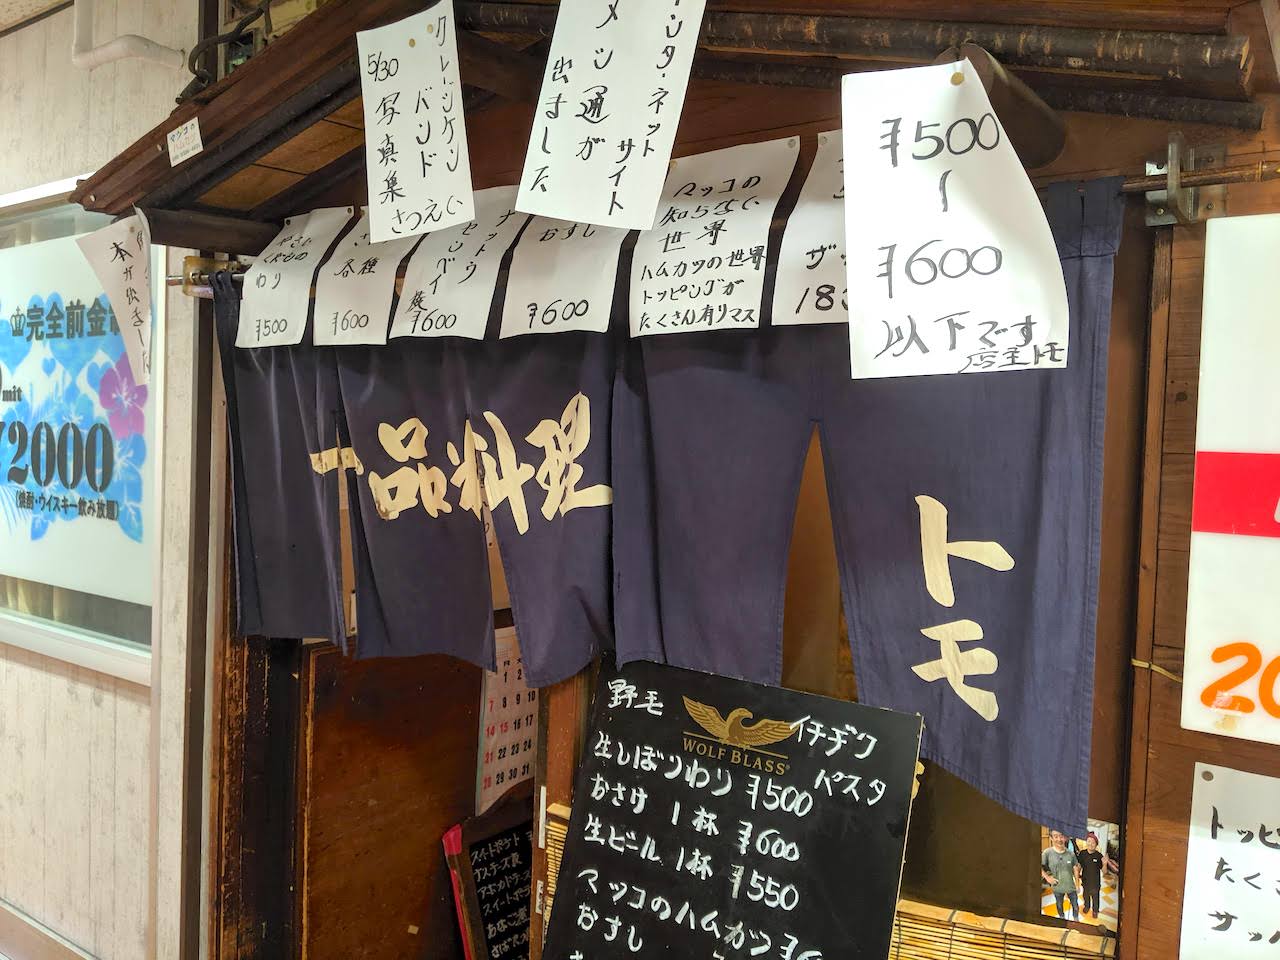 クレージケン
バンド
5/30 写真集
さつえい
ンタ・ネット
サイト
メシ通が
出ました
¥500
〜
¥600
以下です
店主トモ
マツコの
わり
¥500
各種
¥600
ナットウ
センベイ
¥600
おすし
¥600
マツコの
知らない
世界
ハムカツの世界
トッピングが
たくさん有リマス
ザッ
18
本が出ました
完全前金
mit
2000
(焼酎・ウイスキー飲み放題)
一品料理
トモ
月
1 2
7 8 9 10
14 15 16 17
21 22 23 24
28 29 30 31
野モ
イチヂク
パスタ
WOLF BLASS
生しぼりわり ¥500
おさけ 1杯 ¥600
生ビール 1杯 ¥550
マツコのハムカツ
おすし
スイートポテト
チーズ
アボカドチーズ
あなご
20
トッピ
たくさ
サッ